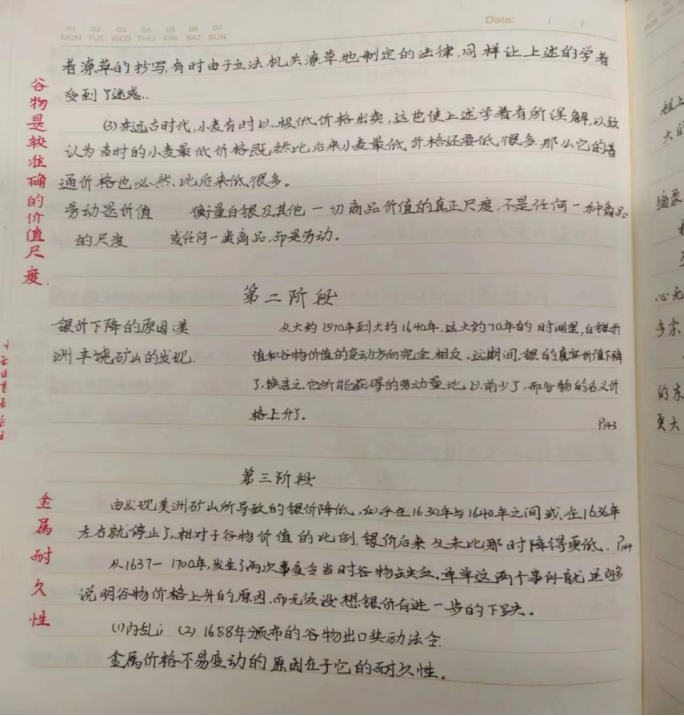 Date: / /
01 02 03 04 05 06 07
MON TUE WED THU FRI SAT SUN
者潦草的抄写,有时由于立法机关潦草地制定的法律,同样让上述的学者
受到了迷惑.
(3)在远古时代,小麦有时以极低价格出卖,这也使上述学者有所误解,以致
认为当时的小麦最低价格既然比后来小麦最低价格还要低很多.那么它的普
通价格也必然比后来低很多。
劳动是价值 衡量白银及其他一切商品价值的真正尺度,不是任何一种商品
的尺度 或任何一类商品,而是劳动.
谷物是较准确的价值尺度.
第二阶段
银价下降的原因:美 从大约1570年到大约1640年.这大约70年的时间里,白银价
洲丰饶矿山的发现. 值和谷物价值的变动方向完全相反.这期间,银的真实价值下降
了,换言之,它所能获得的劳动量比以前少了,而谷物的名义价
格上升了.
P143
第三阶段
由发现美洲矿山所导致的银价降低,似乎在1630年与1640年之间或在1636年
左右就停止了.相对于谷物价值的比例,银价后来又未比那时降得更低. P144
从1637—1700年,发生了两次事变令当时谷物缺乏,单单这两个事件就足够
说明谷物价格上升的原因,而无须设想银价有进一步的下跌。
(1)内乱; (2)1688年颁布的谷物出口奖励法令.
金属价格不易变动的原因在于它的耐久性.
金属耐久性
心无
多余
的东
更大